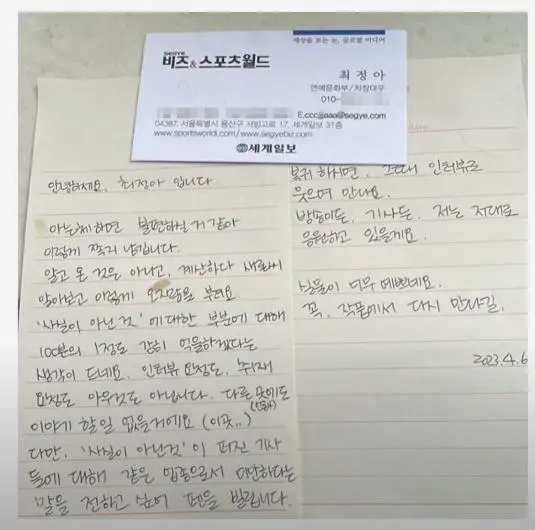 세상을 보는 눈, 글로벌 미디어
SEGYE
비즈&스포츠월드
최 정 아
연예문화부/차장대우
010-
E.ccc@segye.com
04387. 서울특별시 용산구 서빙고로 17, 세계일보 31층
www.sportsworldi.com/www.segyebiz.com
세계일보
안녕하세요, 최정아 입니다.
아는체하면 불편하실거 같아
이렇게 쪽지 남깁니다.
알고 온 것은 아니고, 계산하다 새로와서
알아보고 이렇게 오지랖을 부려요
'사실이 아닌 것' 에 대한 부분에 대해
100분의 1정도 감히 억울하겠다는
생각이 드네요. 인터뷰 요청도, 취재
요청도 아무것도 아닙니다. 다른 곳에도
이야기 할 일 없을거에요 (이곳..)
다만, '사실이 아닌것' 이 퍼진 기사
들에 대해 같은 업종으로서 미안하다는
말을 전하고 싶어 펜을 빌립니다.
복귀 하시면, 그때 인터뷰로
웃으며 만나요.
방송이든, 기사든. 저는 저대로
응원하고 있을게요.
실물이 너무 예쁘네요.
꼭, 작품에서 다시 만나길.
2023.4.6